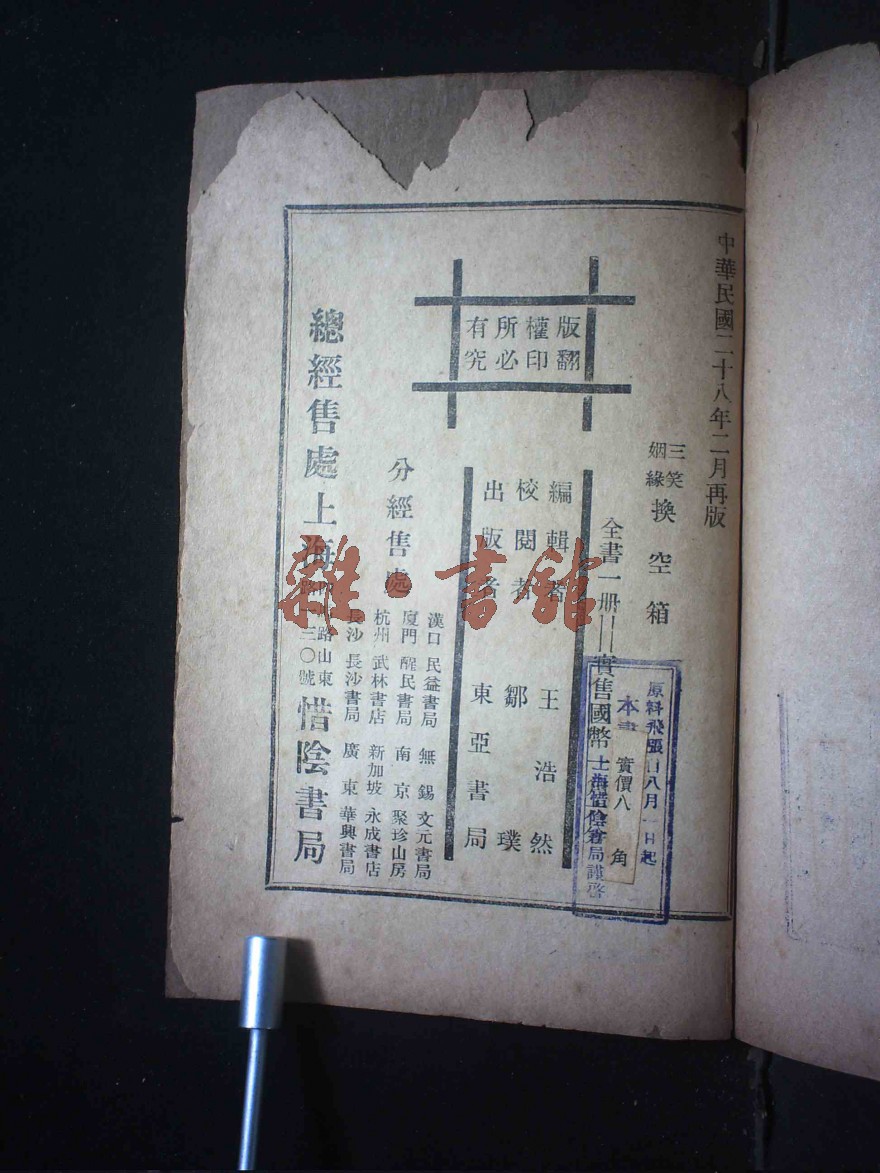 中華民國二十八年二月再版
三笑
姻緣
換空箱
全書一册──實售國幣
原料飛漲
八月一日起
本書
實價八角
上海惜陰書局謹啓
版權所有
翻印必究
編輯者 王浩然
校閱者 鄒璞
出版者 東亞書局
分經售處
漢口 民益書局 無錫 文元書局
廈門 醒民書局 南京 聚珍山房
杭州 武林書店 新加坡 永成書店
長沙 長沙書局 廣東 華興書局
總經售處上海
路山東
路
三〇號
惜陰書局
雜·書館